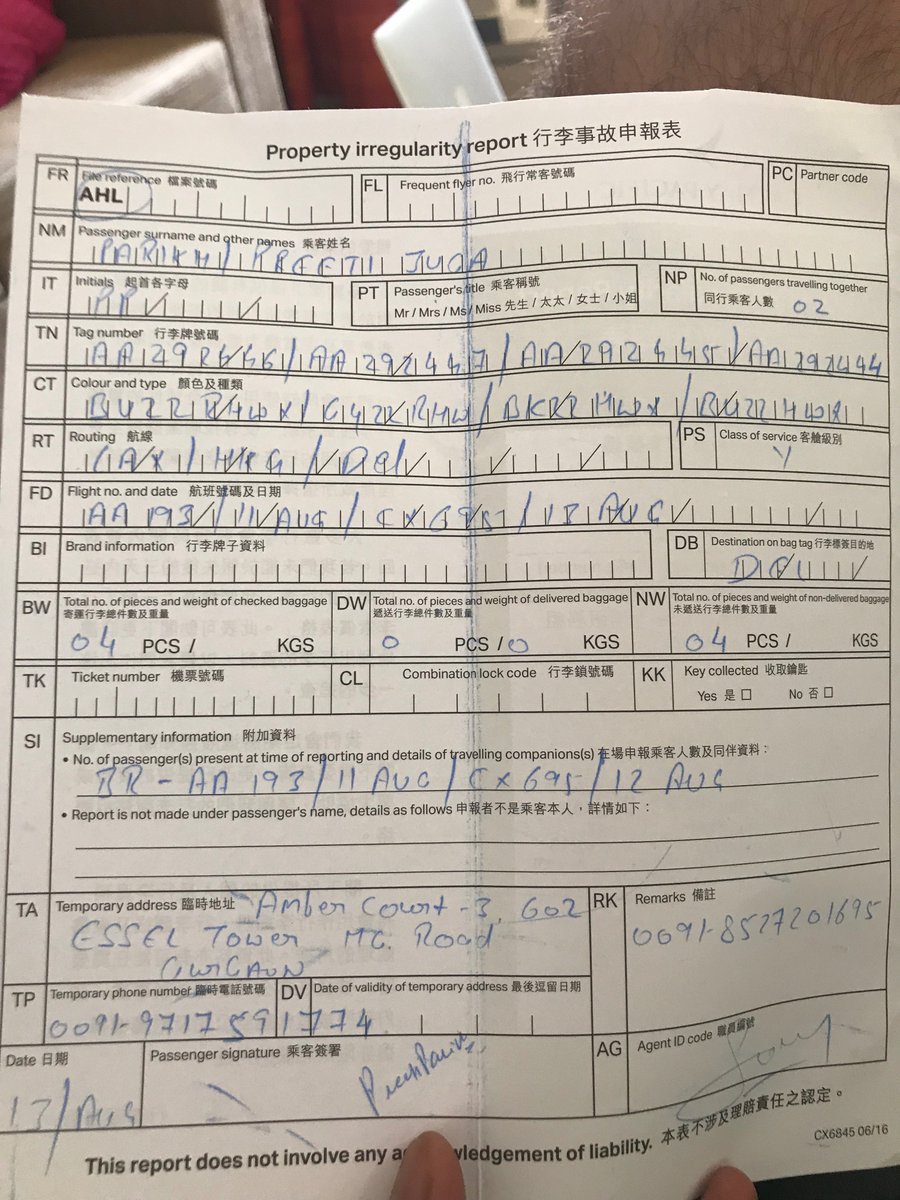 Property irregularity report 行李事故申報表
FR File reference 檔案號碼 FL Frequent flyer no. 飛行常客號碼 PC Partner code
AHL
NM Passenger surname and other names 乘客姓名
PARIKH / PREETI
IT Initials 起首各字母 PT Passenger's title 乘客稱號 NP No. of passengers travelling together
PP Mr / Mrs / Ms / Miss 先生 / 太太 / 女士 / 小姐 同行乘客人數 02
TN Tag number 行李牌號碼
CT Colour and type 顏色及種類
RT Routing 航線 PS Class of service 客艙級別
/ HKG / Y
FD Flight no. and date 航班號碼及日期
AA 193 / 11 AUG / CX 695 / 13 AUG
BI Brand information 行李牌子資料 DB Destination on bag tag 行李標簽目的地
BW Total no. of pieces and weight of checked baggage DW Total no. of pieces and weight of delivered baggage NW Total no. of pieces and weight of non-delivered baggage
寄運行李總件數及重量 遞送行李總件數及重量 未遞送行李總件數及重量
04 PCS / KGS 0 PCS / 0 KGS 04 PCS / KGS
TK Ticket number 機票號碼 CL Combination lock code 行李鎖號碼 KK Key collected 收取鑰匙
Yes 是 □ No 否 □
SI Supplementary information 附加資料
• No. of passenger(s) present at time of reporting and details of travelling companions(s) 在場申報乘客人數及同伴資料：
BR - AA 193 / 11 AUG / CX 695 / 12 AUG
• Report is not made under passenger's name, details as follows 申報者不是乘客本人，詳情如下：
TA Temporary address 臨時地址 Amber Court - 3, 602 RK Remarks 備註
ESSEL Tower MG. Road 0091-8527201695
GURGAON
TP Temporary phone number 臨時電話號碼 DV Date of validity of temporary address 最後逗留日期
0091-9717591774
Date 日期 Passenger signature 乘客簽署 AG Agent ID code 職員編號
13/Aug
This report does not involve any liability. 本表不涉及理賠責任之認定。
CX6845 06/16